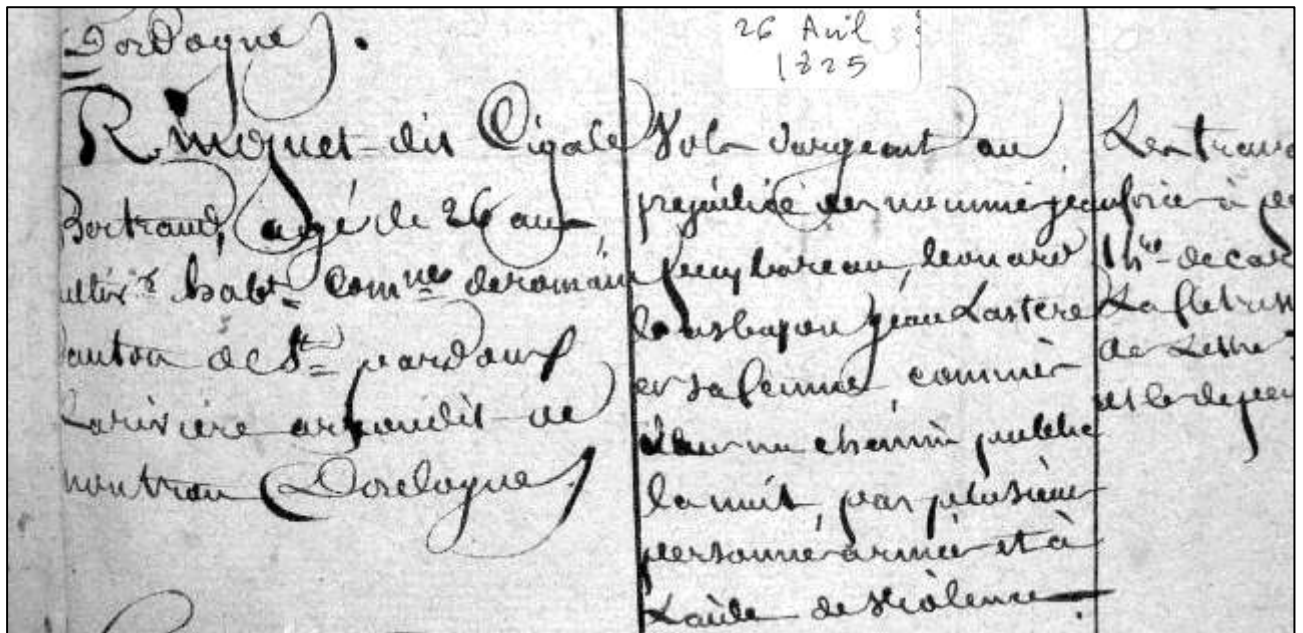 Dordogne).
26 Avril
1825
Rinquet dit Cigale
Bertrand, agé de 26 ans,
cultivr habt comne de romain
canton de St pardoux
Lariviere arrondit de
nontron (Dordogne)
Vol d'argent au
prejudice des nommés jean
puybareau, leonard
jean Lastere
et sa femme, commis
dans un chemin public
la nuit, par plusieurs
personnes armées et à
L'aide de violence.
Les travaux
forcés à per
the de car
La fletriss
de Lettre
et les depen